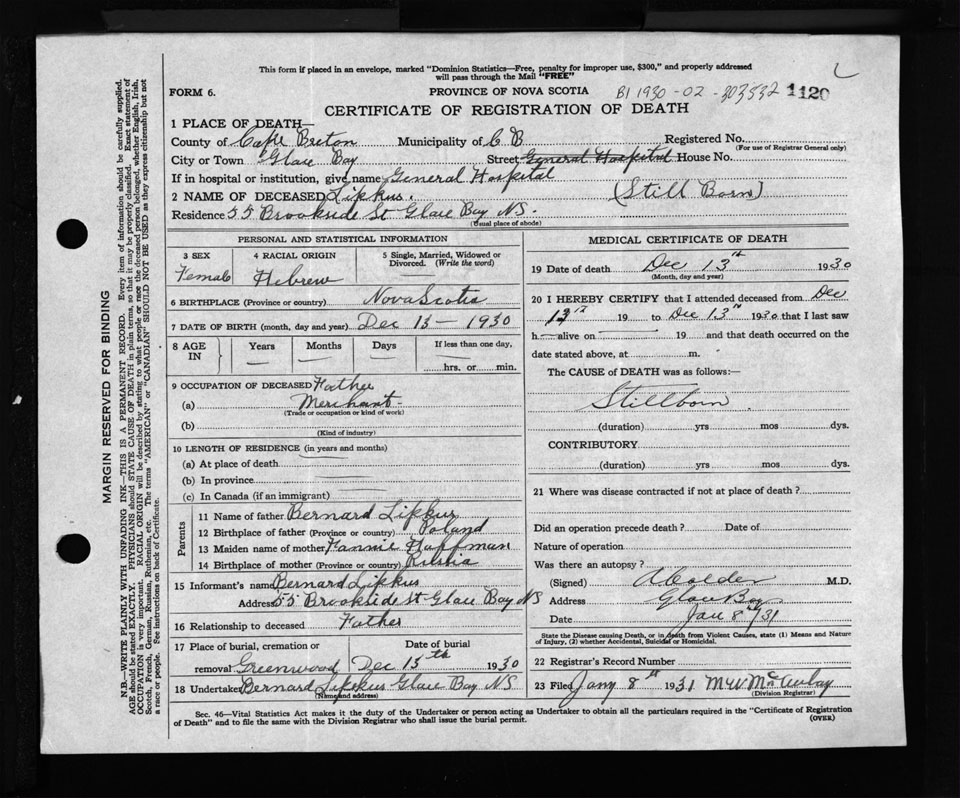 This form if placed in an envelope, marked "Dominion Statistics—Free, penalty for improper use, $300," and properly addressed
will pass through the Mail "FREE"
FORM 6.
PROVINCE OF NOVA SCOTIA
B1 1930-02-303532
1120
CERTIFICATE OF REGISTRATION OF DEATH
1 PLACE OF DEATH—
County of Cape Breton Municipality of C B Registered No.
(For use of Registrar General only)
City or Town Glace Bay Street General Hospital House No.
If in hospital or institution, give name General Hospital
2 NAME OF DECEASED Lipkus. (Still Born)
Residence 55 Brookside St Glace Bay NS.
(Usual place of abode)
PERSONAL AND STATISTICAL INFORMATION
3 SEX
Female
4 RACIAL ORIGIN
Hebrew
5 Single, Married, Widowed or
Divorced. (Write the word)
6 BIRTHPLACE (Province or country) Nova Scotia
7 DATE OF BIRTH (month, day and year) Dec 13 — 1930
8 AGE
IN
Years
Months
Days
If less than one day,
hrs. or min.
9 OCCUPATION OF DECEASED Father
(a) Merchant
(Trade or occupation or kind of work)
(b)
(Kind of industry)
10 LENGTH OF RESIDENCE (in years and months)
(a) At place of death
(b) In province
(c) In Canada (if an immigrant)
Parents
11 Name of father Bernard Lipkus
12 Birthplace of father (Province or country) Poland
13 Maiden name of mother Fannie Hoffman
14 Birthplace of mother (Province or country) Russia
15 Informant's name Bernard Lipkus
Address 55 Brookside St Glace Bay NS
16 Relationship to deceased Father
17 Place of burial, cremation or Date of burial
removal Greenwood Dec 15th 1930
18 Undertaker Bernard Lipkus Glace Bay NS
(Name and address)
MEDICAL CERTIFICATE OF DEATH
19 Date of death Dec 13th 1930
(Month, day and year)
20 I HEREBY CERTIFY that I attended deceased from Dec
13th 19 to Dec 13th 1930 that I last saw
h alive on 19 and that death occurred on the
date stated above, at m.
The CAUSE of DEATH was as follows:—
Stillborn
(duration) yrs mos dys.
CONTRIBUTORY
(duration) yrs mos dys.
21 Where was disease contracted if not at place of death?
Did an operation precede death? Date of
Nature of operation
Was there an autopsy?
(Signed) M.D.
Address Glace Bay
Date Jan 8th/31
State the Disease causing Death, or in death from Violent Causes, state (1) Means and Nature
of Injury, (2) whether Accidental, Suicidal or Homicidal.
22 Registrar's Record Number
23 Filed Jany 8th 1931 M W McAulay
(Division Registrar)
Sec. 46—Vital Statistics Act makes it the duty of the Undertaker or person acting as Undertaker to obtain all the particulars required in the "Certificate of Registration
of Death" and to file the same with the Division Registrar who shall issue the burial permit.
(OVER)
MARGIN RESERVED FOR BINDING
N.B.—WRITE PLAINLY WITH UNFADING INK—THIS IS A PERMANENT RECORD. Every item of information should be carefully supplied.
AGE should be stated EXACTLY. PHYSICIANS should STATE CAUSE OF DEATH in plain terms, so that it may be properly classified. Exact statement of
OCCUPATION is very important. RACIAL ORIGIN will be described by stating to what people or race the deceased person belonged, whether English, Irish,
Scotch, French, German, Russian, Ruthenian, etc. The terms "AMERICAN" or "CANADIAN" SHOULD NOT BE USED as they express citizenship but not
a race or people. See instructions on back of Certificate.